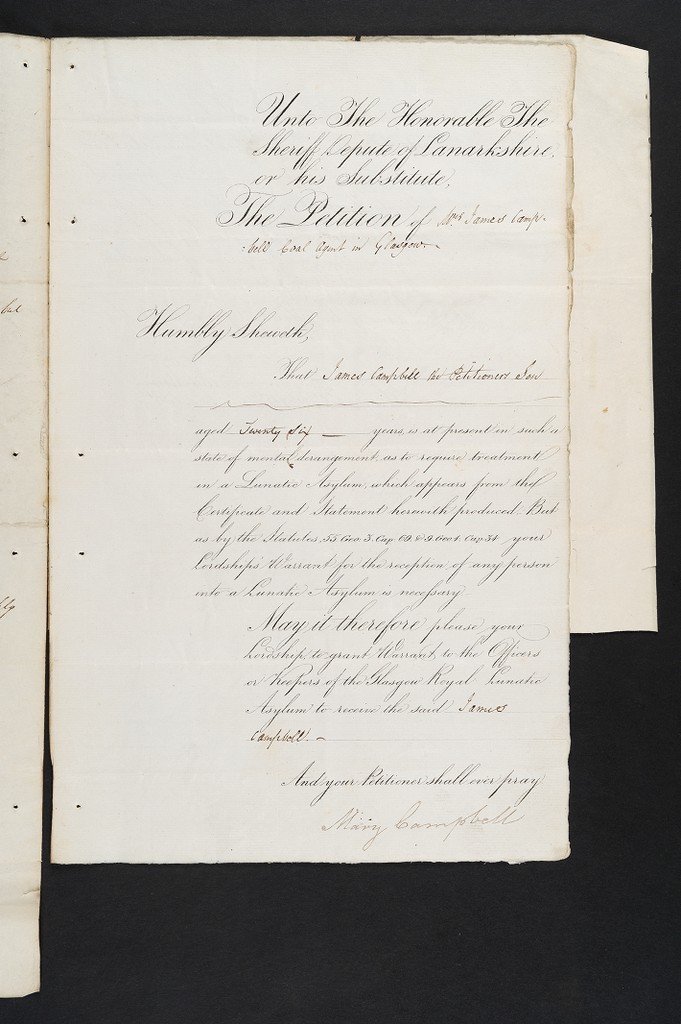 Unto The Honorable The
Sheriff Depute of Lanarkshire,
or his Substitute,
The Petition of Mrs James Camp-
bell Coal Agent in Glasgow.
Humbly Sheweth,
That James Campbell the Petitioners Son
aged Twenty Six years, is at present in such a
state of mental derangement, as to require treatment
in a Lunatic Asylum, which appears from the
Certificate and Statement herewith produced. But
as by the Statutes, 55 Geo. 3. Cap. 69. & 9 Geo 4. Cap 34 your
Lordships Warrant for the reception of any person
into a Lunatic Asylum is necessary.
May it therefore please your
Lordship, to grant Warrant, to the Officers
or Keepers of the Glasgow Royal Lunatic
Asylum to receive the said James
Campbell.
And your Petitioner shall ever pray
Mary Campbell